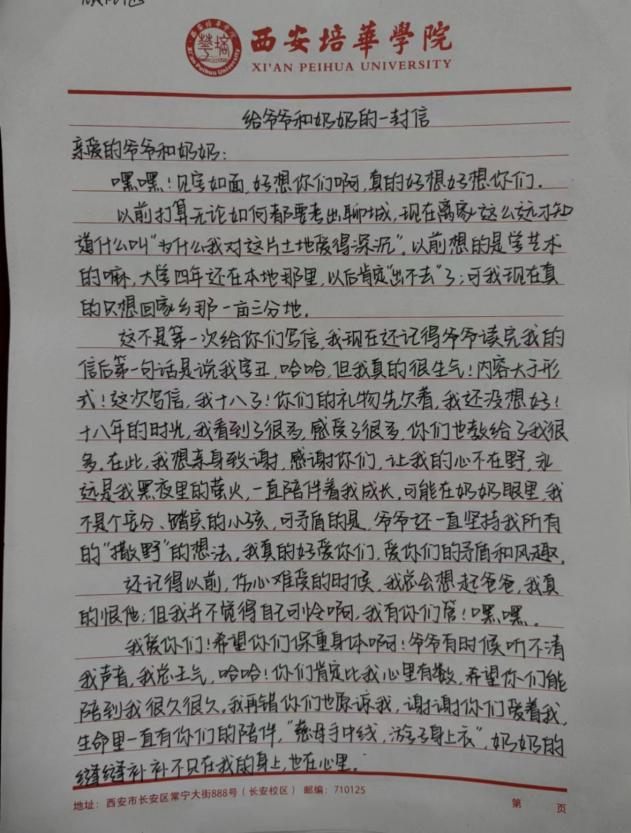 西安培華學院
XI'AN PEIHUA UNIVERSITY
给爷爷和奶奶的一封信
亲爱的爷爷和奶奶：
嘿嘿！见字如面，好想你们啊，真的好想好想你们。
以前打算无论如何都要考出聊城，现在离家这么远才知
道什么叫“为什么我对这片土地爱得深沉”。以前想的是学艺术
的嘛，大学四年还在本地那里，以后肯定“出不去”了；可我现在真
的只想回家乡那一亩三分地。
这不是第一次给你们写信，我现在还记得爷爷读完我的
信后第一句话是说我字丑，哈哈，但我真的很生气！内容大于形
式！这次写信，我十八了！你们的礼物先欠着，我还没想好！
十八年的时光，我看到了很多，感受了很多，你们也教给了我很
多。在此，我想亲身致谢，感谢你们，让我的心不在野，永
远是我黑夜里的萤火，一直陪伴着我成长。可能在奶奶眼里，我
不是个安分、踏实的小孩，可矛盾的是，爷爷还一直坚持我所有
的“撒野”的想法，我真的好爱你们，爱你们的矛盾和风趣。
还记得以前，伤心难受的时候，我总会想起爸爸，我真
的恨他；但我并不觉得自己可怜啊，我有你们管！嘿嘿。
我爱你们！希望你们保重身体啊！爷爷有时候听不清
我声音，我总生气，哈哈！你们肯定比我心里有数，希望你们能
陪到我很久很久。我再错你们也原谅我，谢谢你们爱着我，
生命里一直有你们的陪伴，“慈母手中线，游子身上衣”，奶奶的
缝缝补补不只在我的身上，也在心里。
地址：西安市长安区常宁大街888号（长安校区） 邮编：710125
第 页